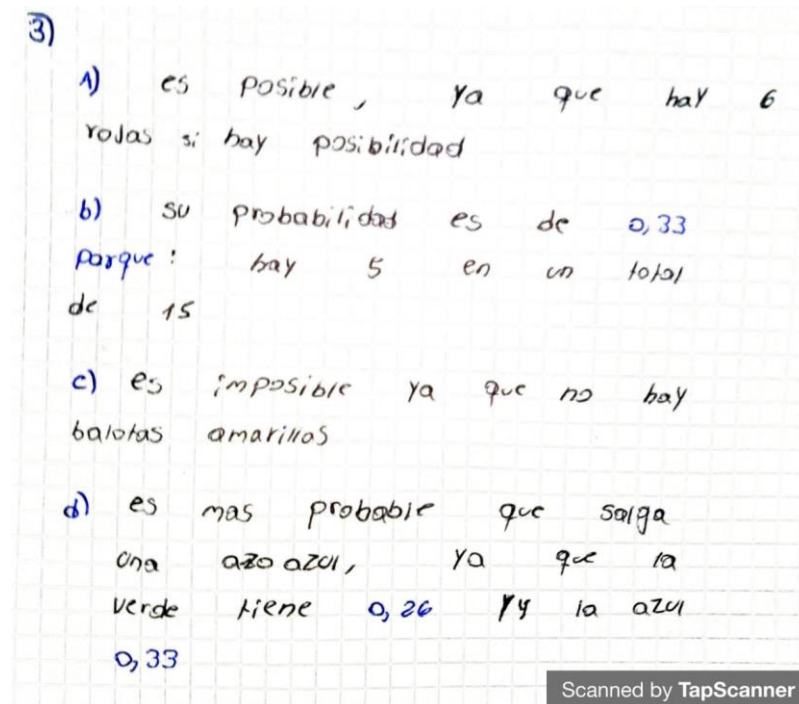 3)
1) es posible, ya que hay 6
rojas si hay posibilidad
b) su probabilidad es de 0,33
porque: hay 5 en un total
de 15
c) es imposible ya que no hay
balotas amarillas
d) es mas probable que salga
una azo azul, ya que la
verde tiene 0,26 y y la azul
0,33
Scanned by TapScanner